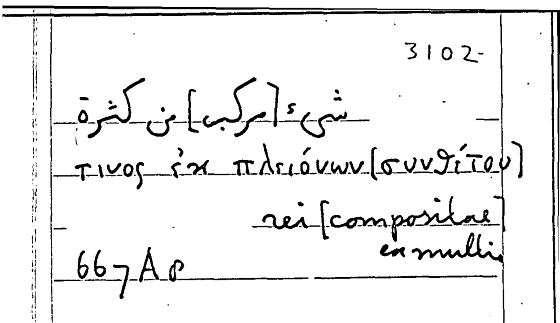 3102-
شيء [مركب] من كثرة
τινος ἐκ πλειόνων [συνθέτου]
rei [compositae]
ex multis
667 A 8